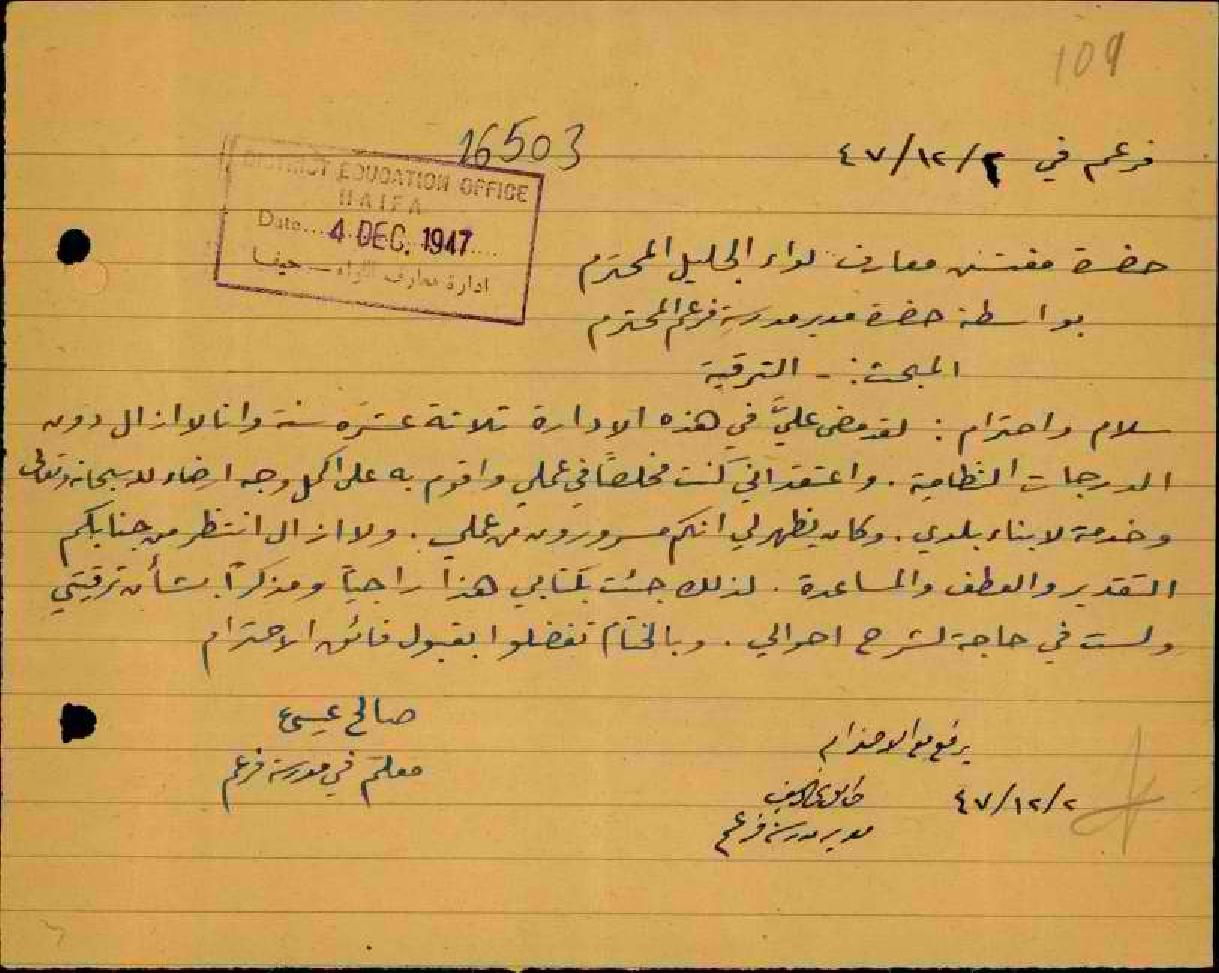 109
16503
فرعم في ٢/١٢/٤٧
DISTRICT EDUCATION OFFICE
HAIFA
Date.... 4 DEC. 1947 ....
ادارة معارف اللواء — حيفا
حضرة مفتش معارف لواء الجليل المحترم
بواسطة حضرة مدير مدرسة فرعم المحترم
المبحث :- الترقية
سلام واحترام : لقد مضى عليَّ في هذه الادارة ثلاثة عشره سنة وانا لا ازال دون
الدرجات النظامية . واعتقد اني كنت مخلصاً في عملي واقوم به على اكمل وجه ارضاء لله سبحانه وتعالى
وخدمة لابناء بلدي . وكان يظهر لي انكم مسرورون من عملي . ولا ازال انتظر من جنابكم
التقدير والعطف والمساعدة . لذلك جئت بكتابي هذا راجياً ومذكراً بشأن ترقيتي
ولست في حاجة لشرح احوالي . وبالختام تفضلوا بقبول فائق الاحترام
صالح عيسى
معلم في مدرسة فرعم
يرفع مع الاحترام
٢/١٢/٤٧
مدير مدرسة فرعم